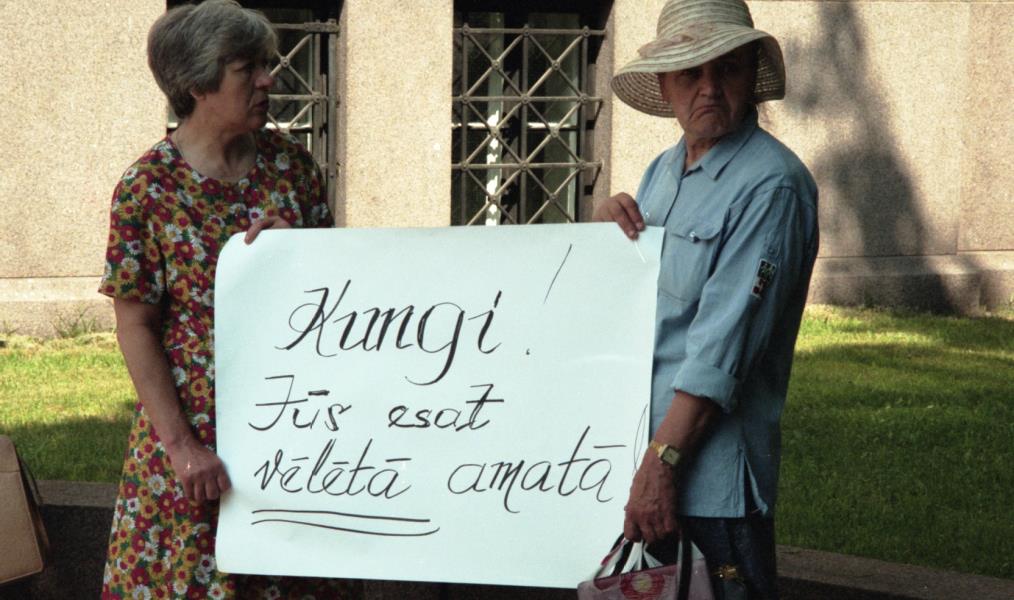 Kungi!
Jūs esat
vēlētā amatā!